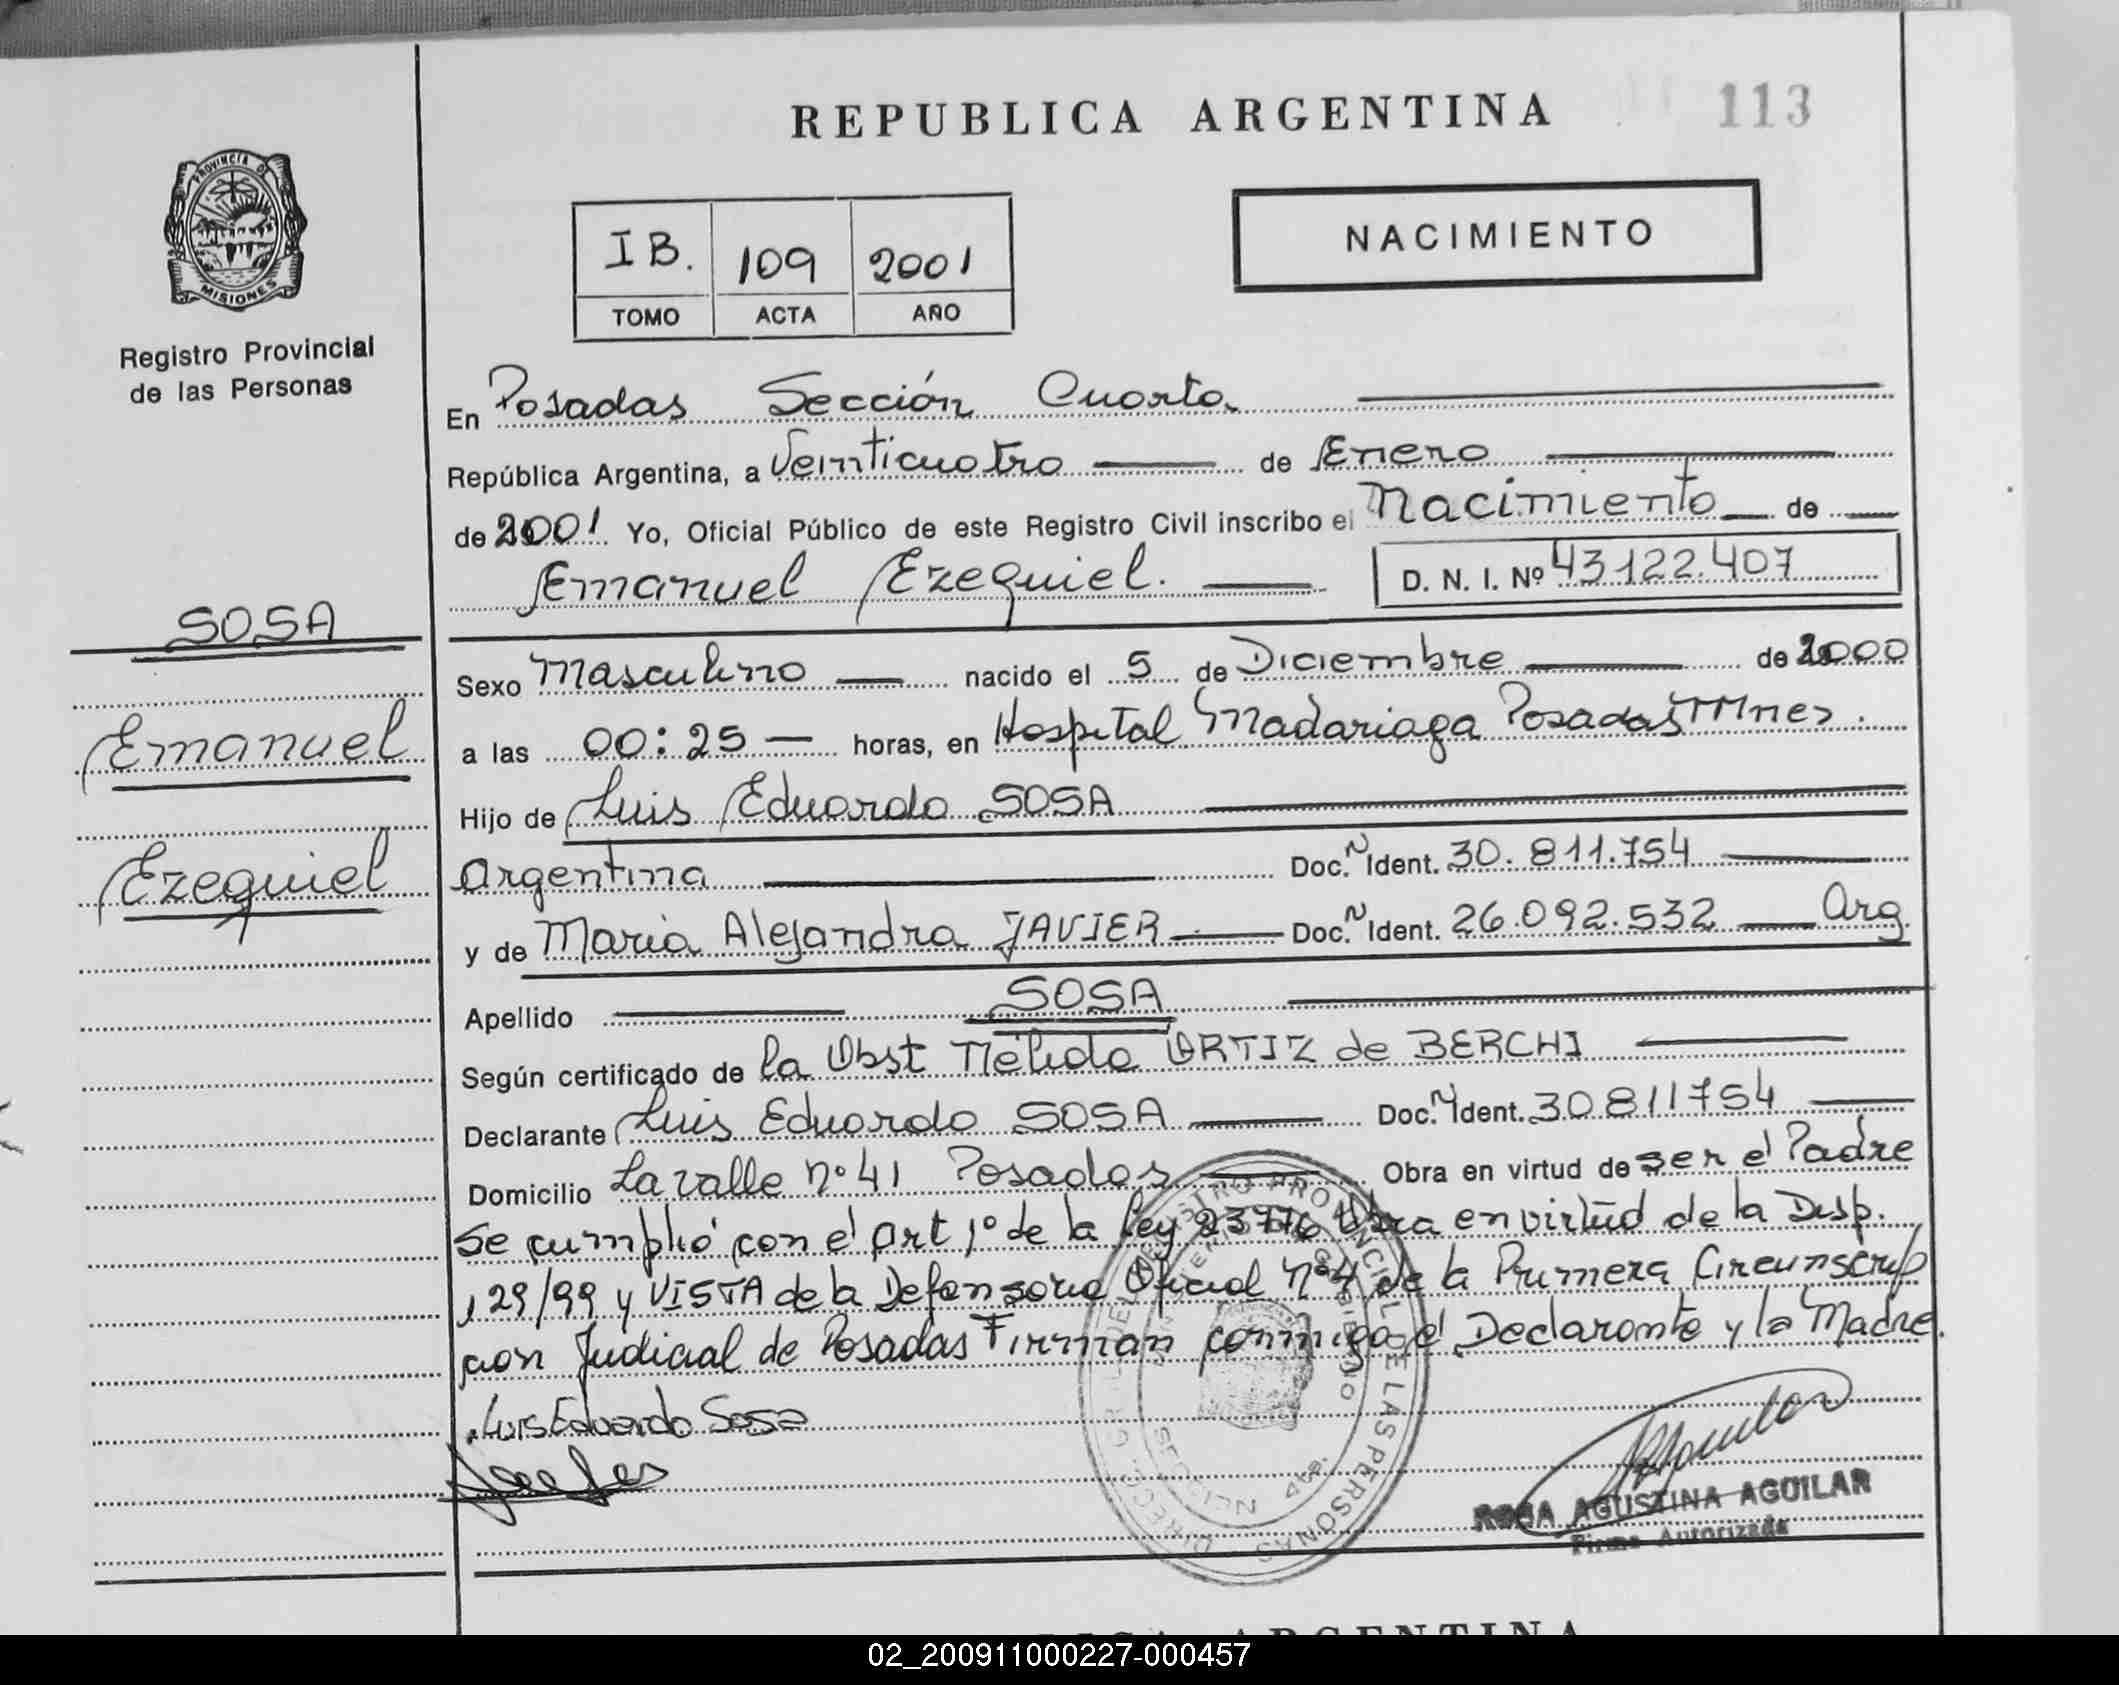 REPUBLICA ARGENTINA
113
PROVINCIA DE
MISIONES
Registro Provincial
de las Personas
IB. 109 2001
TOMO ACTA AÑO
NACIMIENTO
En Posadas Sección Cuarta
República Argentina, a Veinticuatro de Enero
de 2001 Yo, Oficial Público de este Registro Civil inscribo el Nacimiento de
Emanuel Ezequiel.
D. N. I. Nº 43.122.407
SOSA
Emanuel
Ezequiel
Sexo Masculino nacido el 5 de Diciembre de 2000
a las 00:25 horas, en Hospital Madariaga Posadas Mnes.
Hijo de Luis Eduardo SOSA
Argentina Doc. N Ident. 30.811.754
y de Maria Alejandra JAVIER Doc. N Ident. 26.092.532 Arg.
Apellido SOSA
Según certificado de la Obst Nélida ORTIZ de BERCHI
Declarante Luis Eduardo SOSA Doc. N Ident. 30811754
Domicilio Lavalle nº 41 Posadas Obra en virtud de ser el Padre
Se cumplió con el Art 1º de la Ley 23776 Obra en virtud de la Disp.
129/99 y VISTA de la Defensoria Oficial Nº 4 de la Primera Circunscrip
cion Judicial de Posadas Firman conmigo el Declarante y la Madre.
Luis Eduardo Sosa
REGISTRO PROVINCIAL DE LAS PERSONAS
SECCION 4ta.
ROSA AGUSTINA AGUILAR
Firma Autorizada
02_200911000227-000457